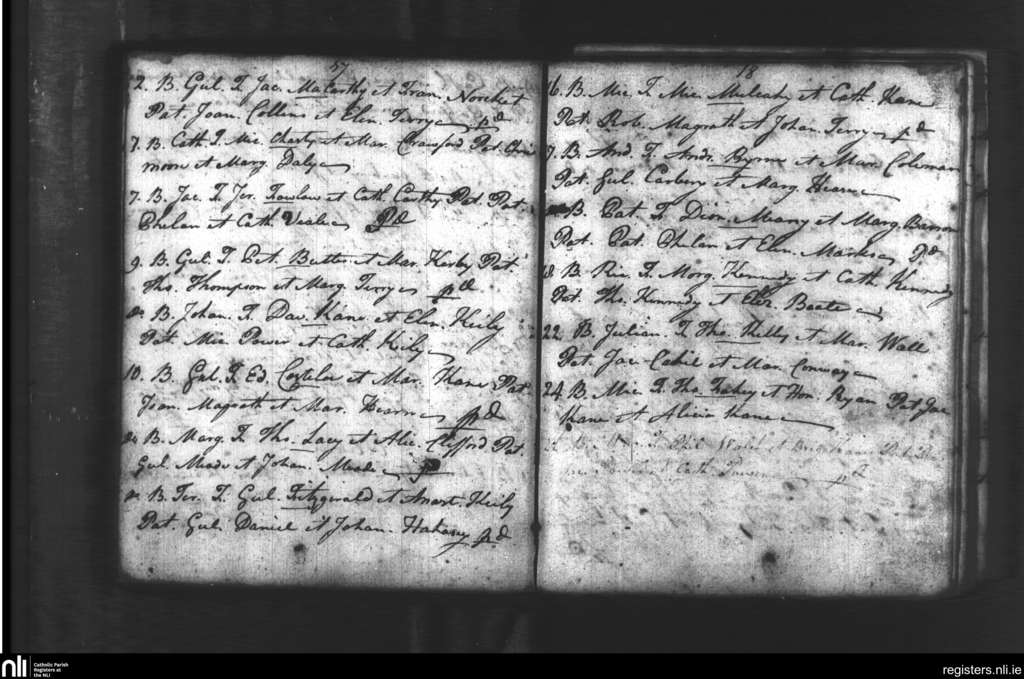 57
2. B. Gul. F. Jac. McCarthy et Fran.
Pat. Joan. Collins et Elen. Terry pd
7. B. Cath. F. Mic. et Mar. Crawford Pat.
et Marg. Daly
7. B. Jac. F. Jer. et Cath. Carthy Pat. Pat.
Phelan et Cath. Veale Pd
9. B. Gul. F. Butler et Mar. Kerby Pat.
Tho. Thompson et Marg. Terry pd
B. Johan. F. Dav. Kane et Elen. Keily
Pat. Mic. Power et Cath. Keily
10. B. Gul. F. Ed. Costelow et Mar. Kane Pat.
Joan. Magrath et Mar. Hearn pd
B. Marg. F. Tho. Lacy et Alic. Clifford Pat.
Gul. Meade et Johan. Meade
B. F. Gul. Fitzgerald et Keily
Pat. Gul. Daniel et Johan. pd
18
16. B. Mic. F. Mic. Mulcahy et Cath. Kane
Pat. Rob. Magrath et Johan. Terry pd
B. And. F. Andr. Byrne et Mar. Coleman
Pat. Gul. Carbery et Marg. Hearn
B. Pat. F. Dion. Meany et Marg. Barron
Pat. Pat. Phelan et Elen. pd
18 B. Ric. F. Morg. Kennedy et Cath. Kennedy
Pat. Tho. Kennedy et Eliz.
22 B. Julian. F. Tho. et Mar. Wall
Pat. Jac. Cahil et Mar. Conway
24 B. Mic. F. Tho. Fahey et Hon. Ryan Pat. Jac.
Kane et Alicia Kane
Cath. Power pd
nli
Catholic Parish
Registers at
the NLI
registers.nli.ie